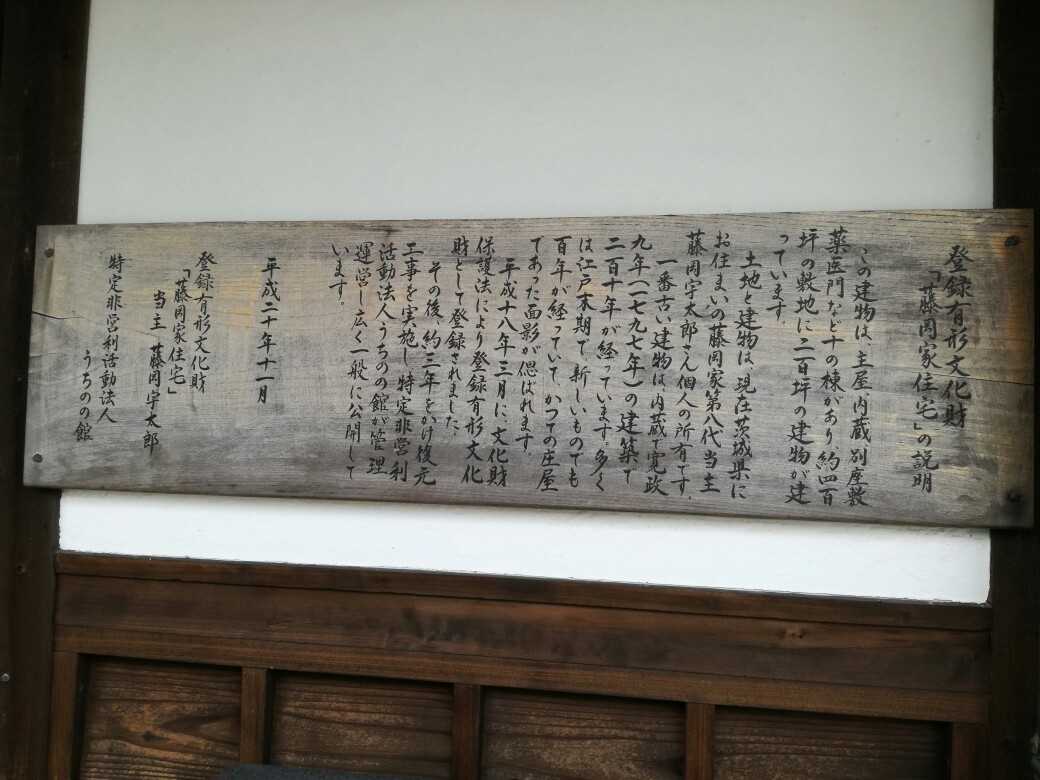 登録有形文化財
「藤岡家住宅」の説明
この建物は、主屋、内蔵、別座敷
薬医門など十の棟があり約四百
坪の敷地に二百坪の建物が建
っています。
土地と建物は、現在茨城県に
お住まいの藤岡家第八代当主
藤岡宇太郎さん個人の所有です。
一番古い建物は内蔵で寛政
九年(一七九七年)の建築て
二百十年が経っています。多く
は江戸末期で、新しいものでも
百年が経っていて、かつての庄屋
であった面影が偲ばれます
平成十八年三月に、文化財
保護法により登録有形文化
財として登録されました。
その後、約三年をかけ復元
工事を実施し、特定非営利
活動法人うちのの館が管理
運営し広く一般に公開して
います。
平成二十年十一月
登録有形文化財
「藤岡家住宅」
当主 藤岡宇太郎
特定非営利活動法人
うちのの館